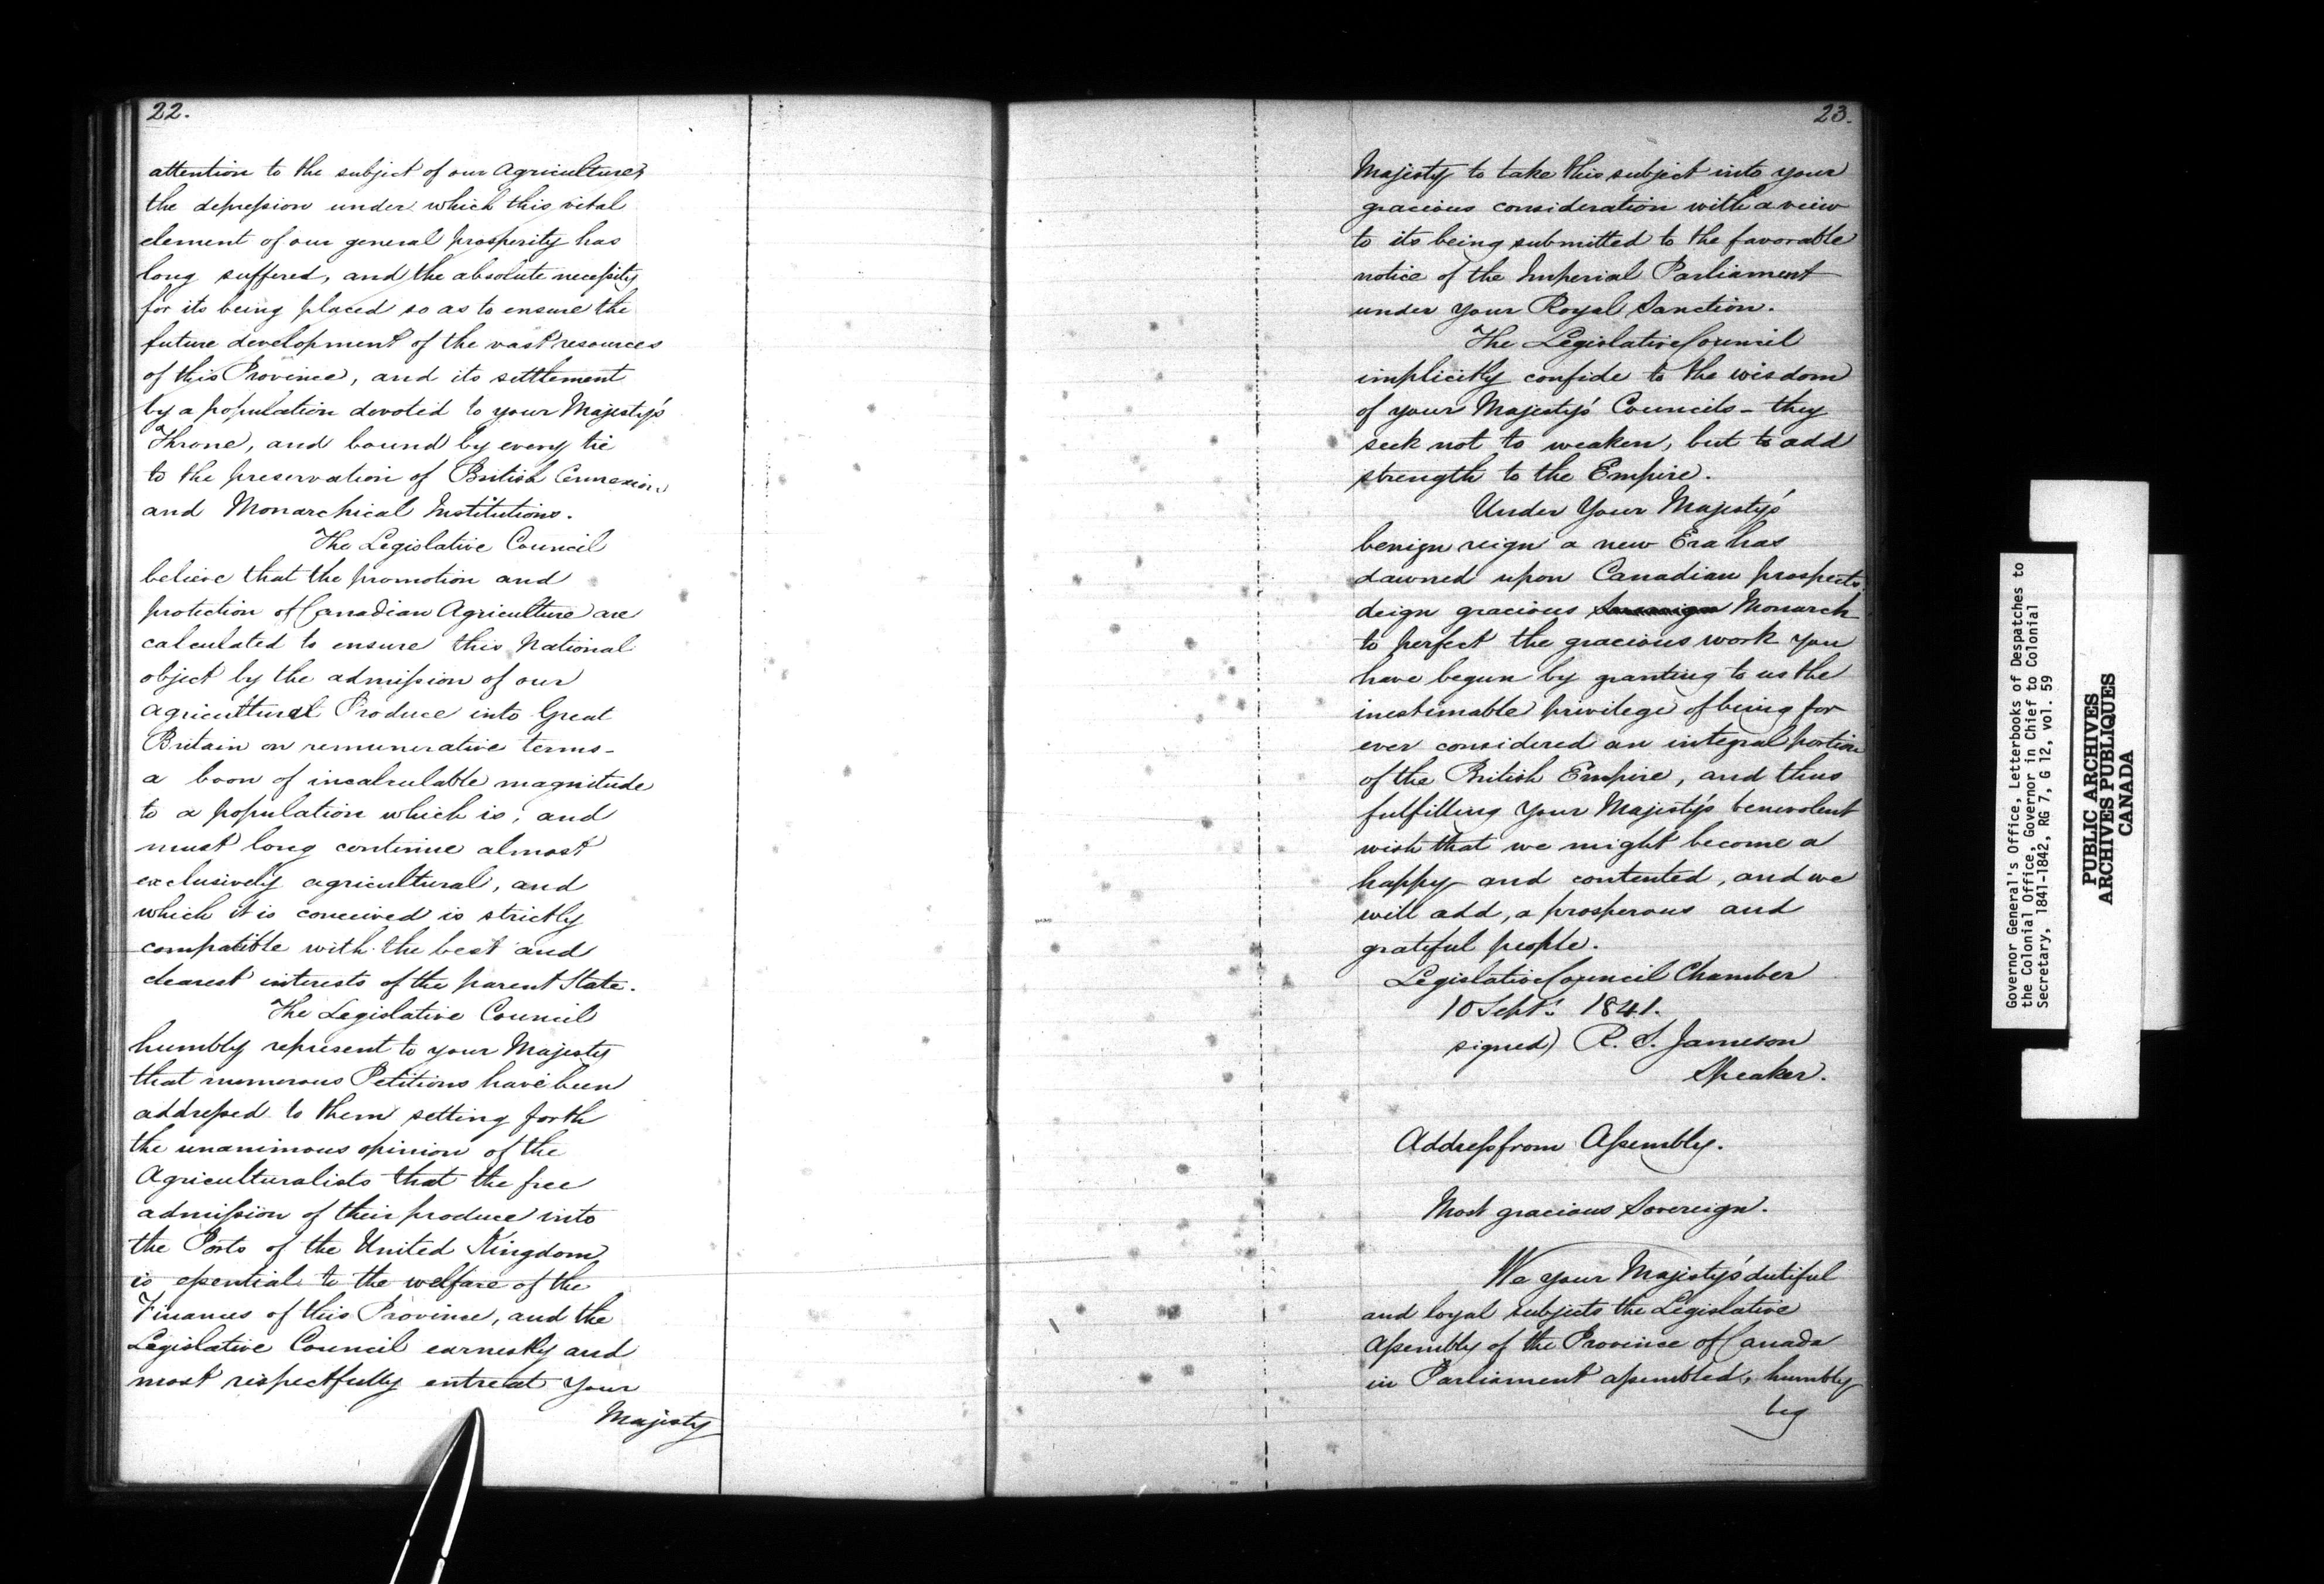 22.
attention to the subject of our Agriculture,
the depression under which this vital
element of our general prosperity has
long suffered, and the absolute necessity
for its being placed so as to ensure the
future development of the vast resources
of this Province, and its settlement
by a population devoted to your Majesty's
Throne, and bound by every tie
to the preservation of British Connexion
and Monarchical Institutions.
The Legislative Council
believe that the promotion and
protection of Canadian Agriculture are
calculated to ensure this National
object by the admission of our
agricultural Produce into Great
Britain on remunerative terms -
a boon of incalculable magnitude
to a population which is, and
must long continue almost
exclusively agricultural, and
which it is conceived is strictly
compatible with the best and
dearest interests of the parent State.
The Legislative Council
humbly represent to your Majesty
that numerous Petitions have been
addressed to them setting forth
the unanimous opinion of the
Agriculturalists that the free
admission of their produce into
the Ports of the United Kingdom
is essential to the welfare of the
Finances of this Province, and the
Legislative Council earnestly and
most respectfully entreat Your
Majesty
23.
Majesty to take this subject into your
gracious consideration with a view
to its being submitted to the favorable
notice of the Imperial Parliament
under your Royal Sanction.
The Legislative Council
implicitly confide to the wisdom
of your Majesty's Councils - they
seek not to weaken, but to add
strength to the Empire.
Under Your Majesty's
benign reign a new Era has
dawned upon Canadian prospects
deign gracious Monarch
to perfect the gracious work you
have begun by granting to us the
inestimable privilege of being for
ever considered an integral portion
of the British Empire, and thus
fulfilling Your Majesty's benevolent
wish that we might become a
happy and contented, and we
will add, a prosperous and
grateful people.
Legislative Council Chamber
10 Sept. 1841.
signed) R. S. Jameson
Speaker.
Address from Assembly.
Most gracious Sovereign.
We your Majesty's dutiful
and loyal subjects the Legislative
Assembly of the Province of Canada
in Parliament assembled, humbly
beg
Governor General's Office, Letterbooks of Despatches to
the Colonial Office, Governor in Chief to Colonial
Secretary, 1841-1842, RG 7, G 12, vol. 59
PUBLIC ARCHIVES
ARCHIVES PUBLIQUES
CANADA